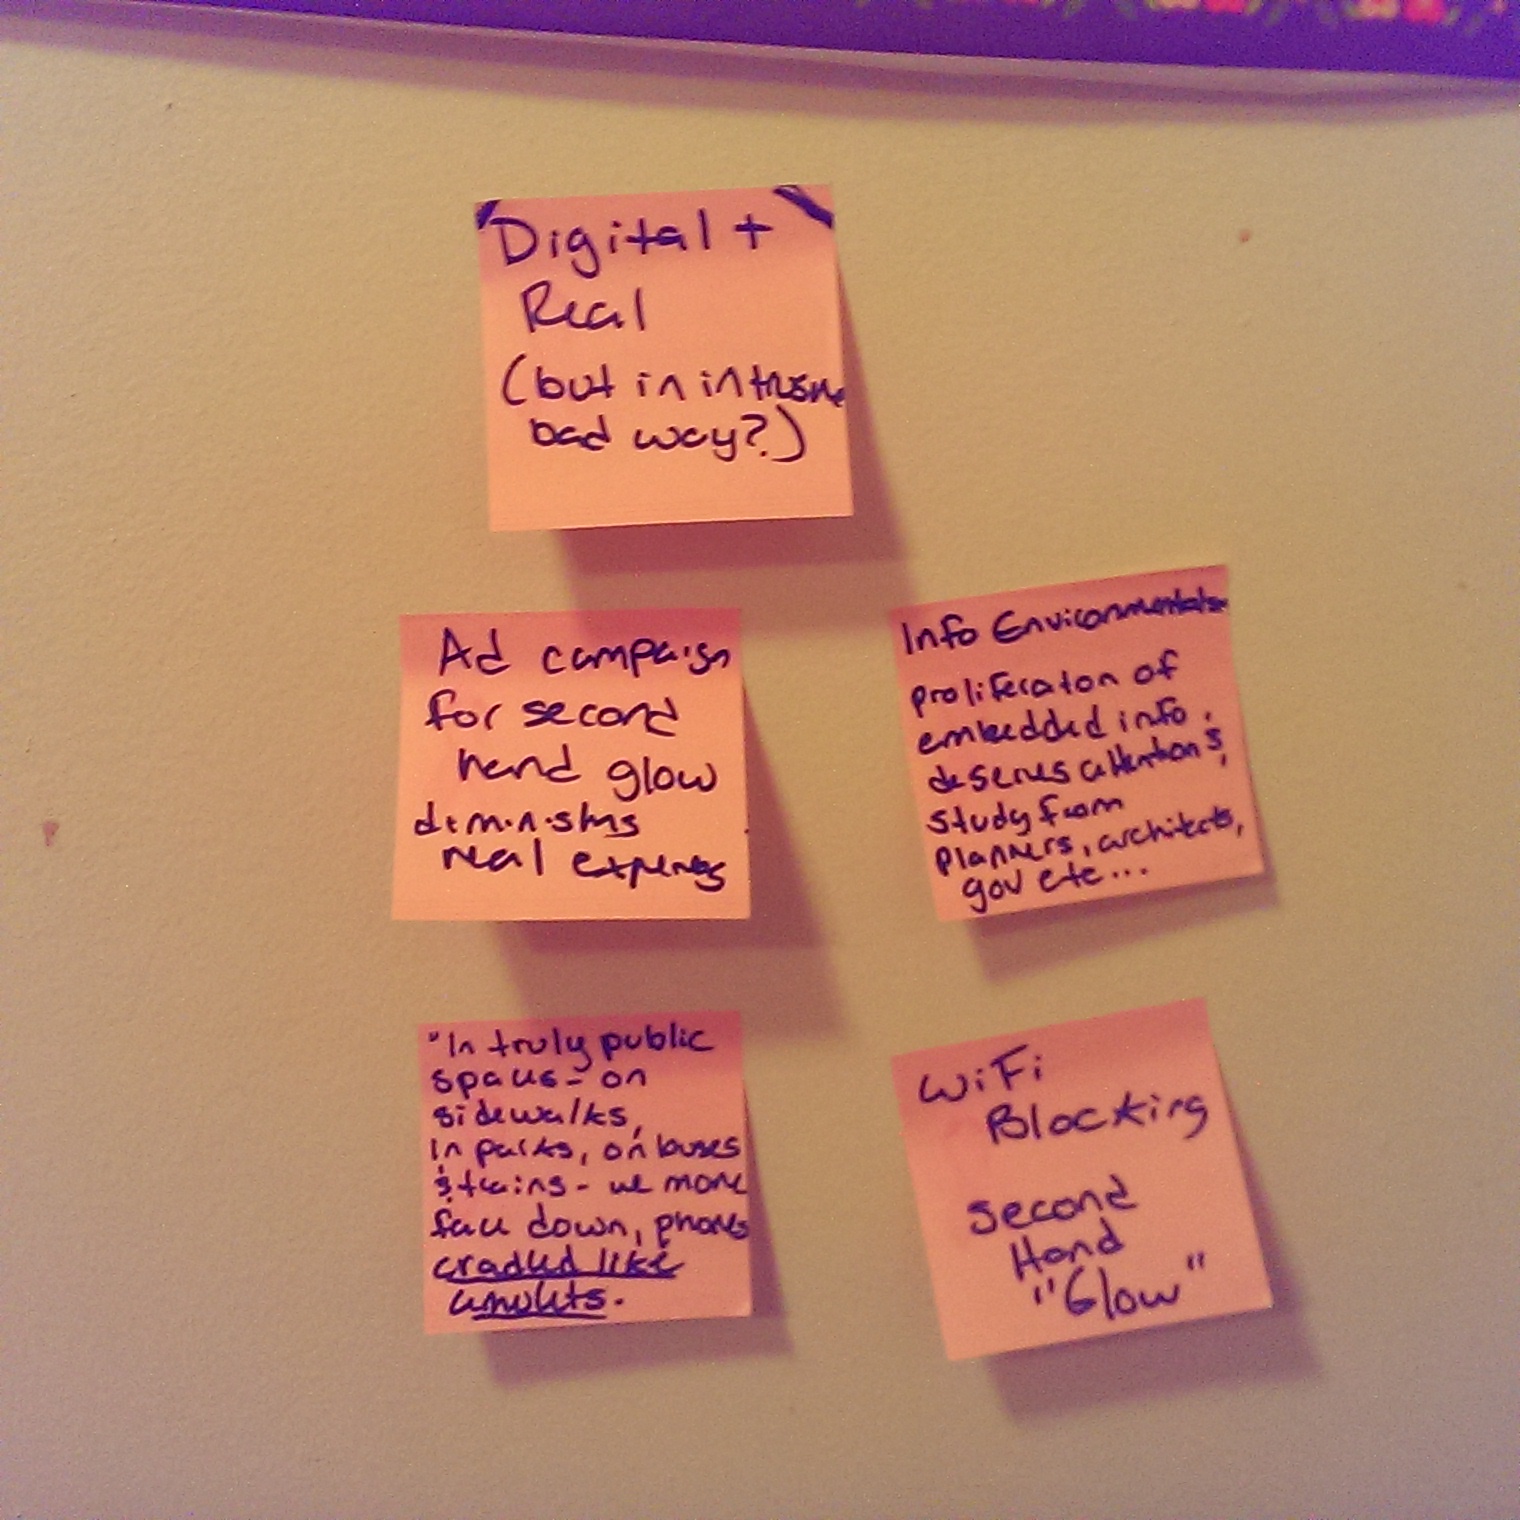 Digital +
Real
(but in intrusive
bad way?)
Ad campaign
for second
hand glow
diminishes
real
Info Environmentals
proliferation of
embedded info.
deserves attention &
study from
planners, architects,
gov etc...
"In truly public
spaces - on
sidewalks,
in parks, on buses
& trains - we move
face down, phones
cradled like
amulets.
WiFi
Blocking
Second
Hand
"Glow"